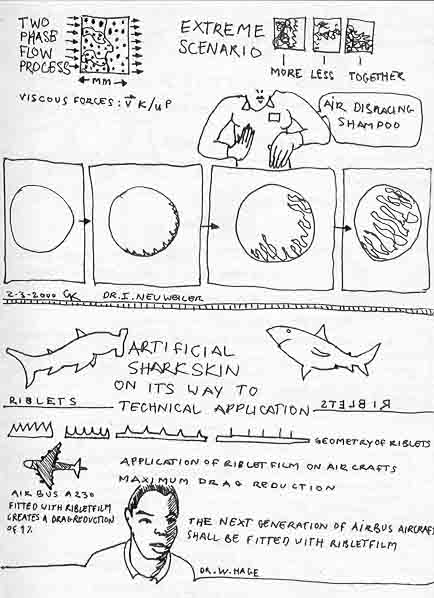 TWO
PHASE
FLOW
PROCESS
MM
VISCOUS FORCES: V K/UP
EXTREME
SCENARIO
MORE LESS TOGETHER
AIR DISPLACING
SHAMPOO
2-3-2000 GK DR. I. NEUWEILER
ARTIFICIAL
SHARKSKIN
ON ITS WAY TO
TECHNICAL APPLICATION
RIBLETS
RIBLETS
GEOMETRY OF RIBLETS
APPLICATION OF RIBLET FILM ON AIRCRAFTS
MAXIMUM DRAG REDUCTION
AIRBUS A230
FITTED WITH RIBLETFILM
CREATES A DRAGREDUCTION
OF 9%
THE NEXT GENERATION OF AIRBUS AIRCRAFT
SHALL BE FITTED WITH RIBLETFILM
DR. W. HAGE